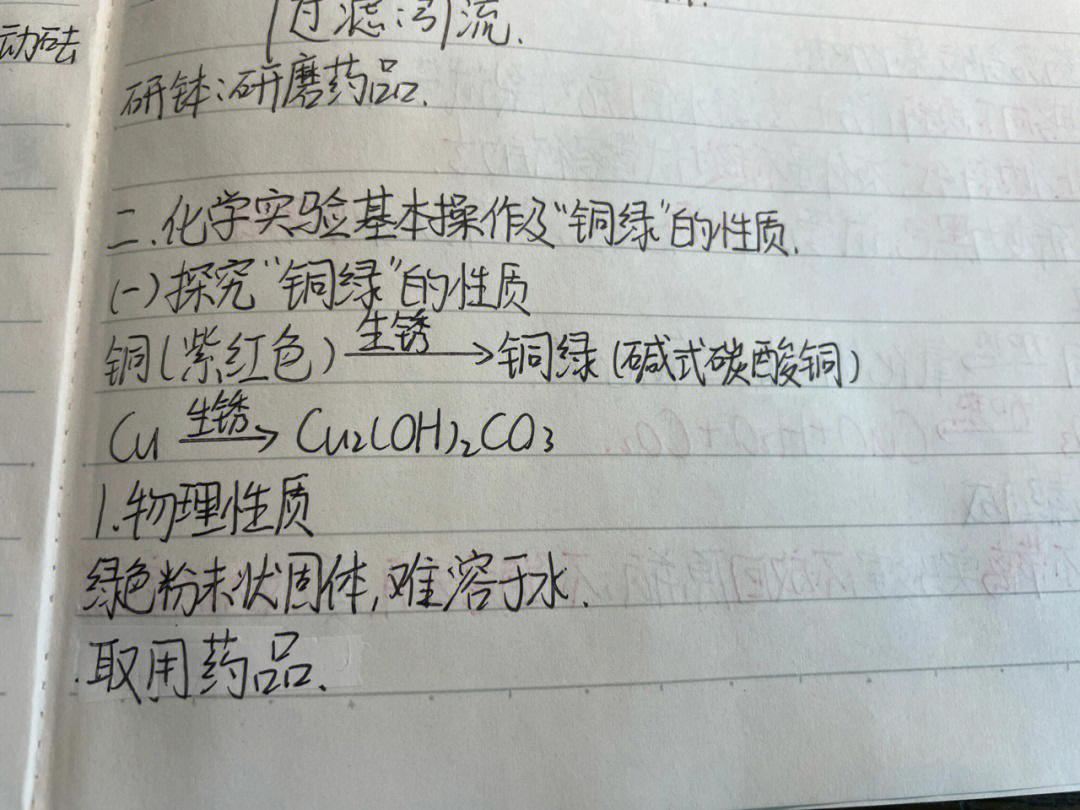 过滤:引流.
动砝
研钵:研磨药品.
二.化学实验基本操作及"铜绿"的性质.
(一)探究"铜绿"的性质
铜(紫红色) 生锈→ 铜绿(碱式碳酸铜)
Cu 生锈→ Cu₂(OH)₂CO₃
1.物理性质
绿色粉末状固体,难溶于水.
取用药品.